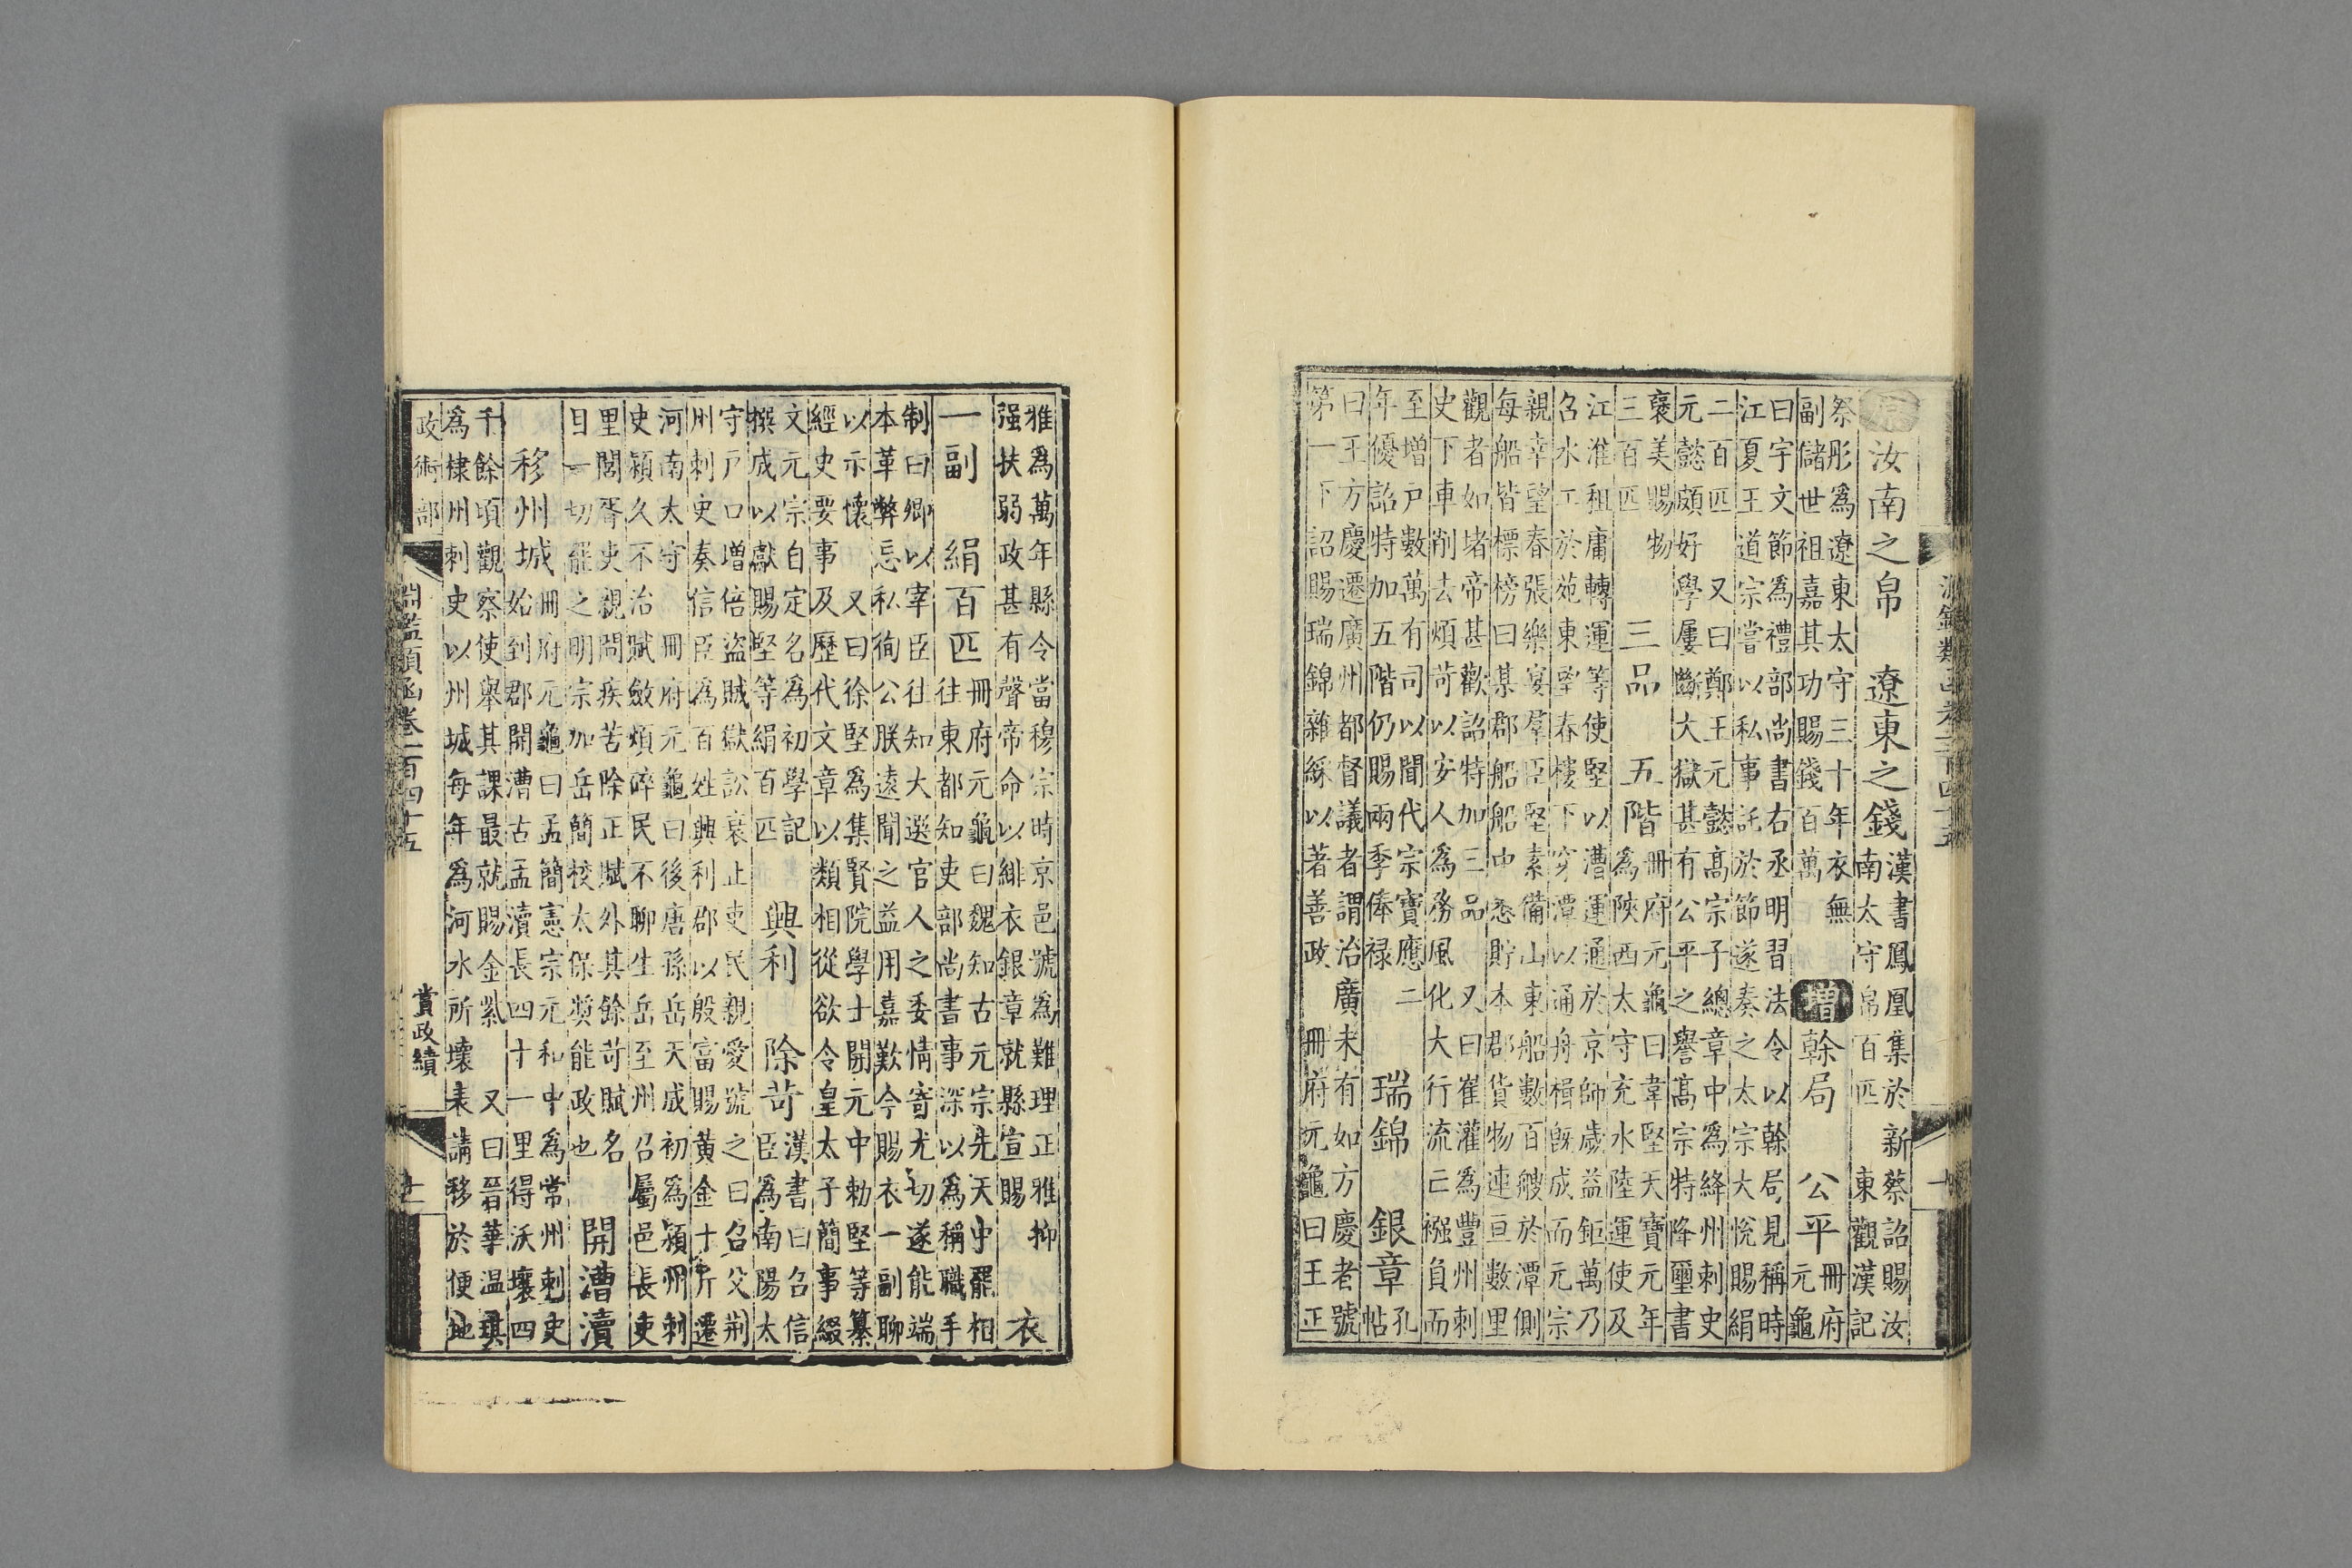 淵鑑類函卷一百四十五
原 汝南之帛 遼東之錢
漢書鳳凰集於新蔡詔賜汝
南太守帛百匹 東觀漢記
祭彤為遼東太守三十年衣無
副儲世祖嘉其功賜錢百萬
增 幹局 公平
冊府
元龜
曰宇文節為禮部尚書右丞明習法令以幹局見稱時
江夏王道宗嘗以私事託於節遂奏之太宗大悅賜絹
二百匹 又曰鄭王元懿高宗子總章中為絳州刺史
元懿頗好學屢斷大獄甚有公平之譽高宗特降璽書
襃美賜物
三百匹
三品 五階
冊府元龜曰韋堅天寶元年
為陝西太守充水陸運使及
江淮租庸轉運等使堅以漕運通於京師歲益鉅萬乃
召水工於苑東望春樓下穿潭以通舟楫旣成而元宗
親幸望春張樂宴羣臣堅素備山東船數百艘於潭側
每船皆標榜曰某郡船船中悉貯本郡貨物連亘數里
觀者如堵帝甚歡詔特加三品 又曰崔灌為豐州刺
史下車削去煩苛以安人為務風化大行流亡襁負而
至增戶數萬有司以聞代宗寶應二
年優詔特加五階仍賜兩季俸祿
瑞錦 銀章
孔
帖
曰王方慶遷廣州都督議者謂治廣未有如方慶者號
第一下詔賜瑞錦雜綵以著善政 冊府元龜曰王正
雅為萬年縣令當穆宗時京邑號為難理正雅抑
強扶弱政甚有聲帝命以緋衣銀章就縣宣賜
衣
一副 絹百匹
冊府元龜曰魏知古元宗先天中罷相
往東都知吏部尚書事深以為稱職手
制曰卿以宰臣往知大選官人之委情寄尤切遂能端
本革弊忘私徇公朕遠聞之益用嘉歎今賜衣一副聊
以示懷 又曰徐堅為集賢院學士開元中勅堅等纂
經史要事及歷代文章以類相從欲令皇太子簡事綴
文元宗自定名為初學記
撰成以獻賜堅等絹百匹
興利 除苛
漢書曰召信
臣為南陽太
守戶口增倍盜賊獄訟衰止吏民親愛號之曰召父荆
州刺史奏信臣為百姓興利郡以殷富賜黃金十斤遷
河南太守 冊府元龜曰後唐孫岳天成初為潁州刺
史潁久不治賦斂煩碎民不聊生岳至州召屬邑長吏
里閭胥吏親問疾苦除正賦外其餘苛賦名
目一切罷之明宗加岳簡校太保奬能政也
開漕瀆
移州城
冊府元龜曰孟簡憲宗元和中為常州刺史
始到郡開漕古孟瀆長四十一里得沃壤四
千餘頃觀察使舉其課最就賜金紫 又曰晉華溫琪
為棣州刺史以州城每年為河水所壞表請移於便地
政術部
賞政績
淵鑑類函卷一百四十五